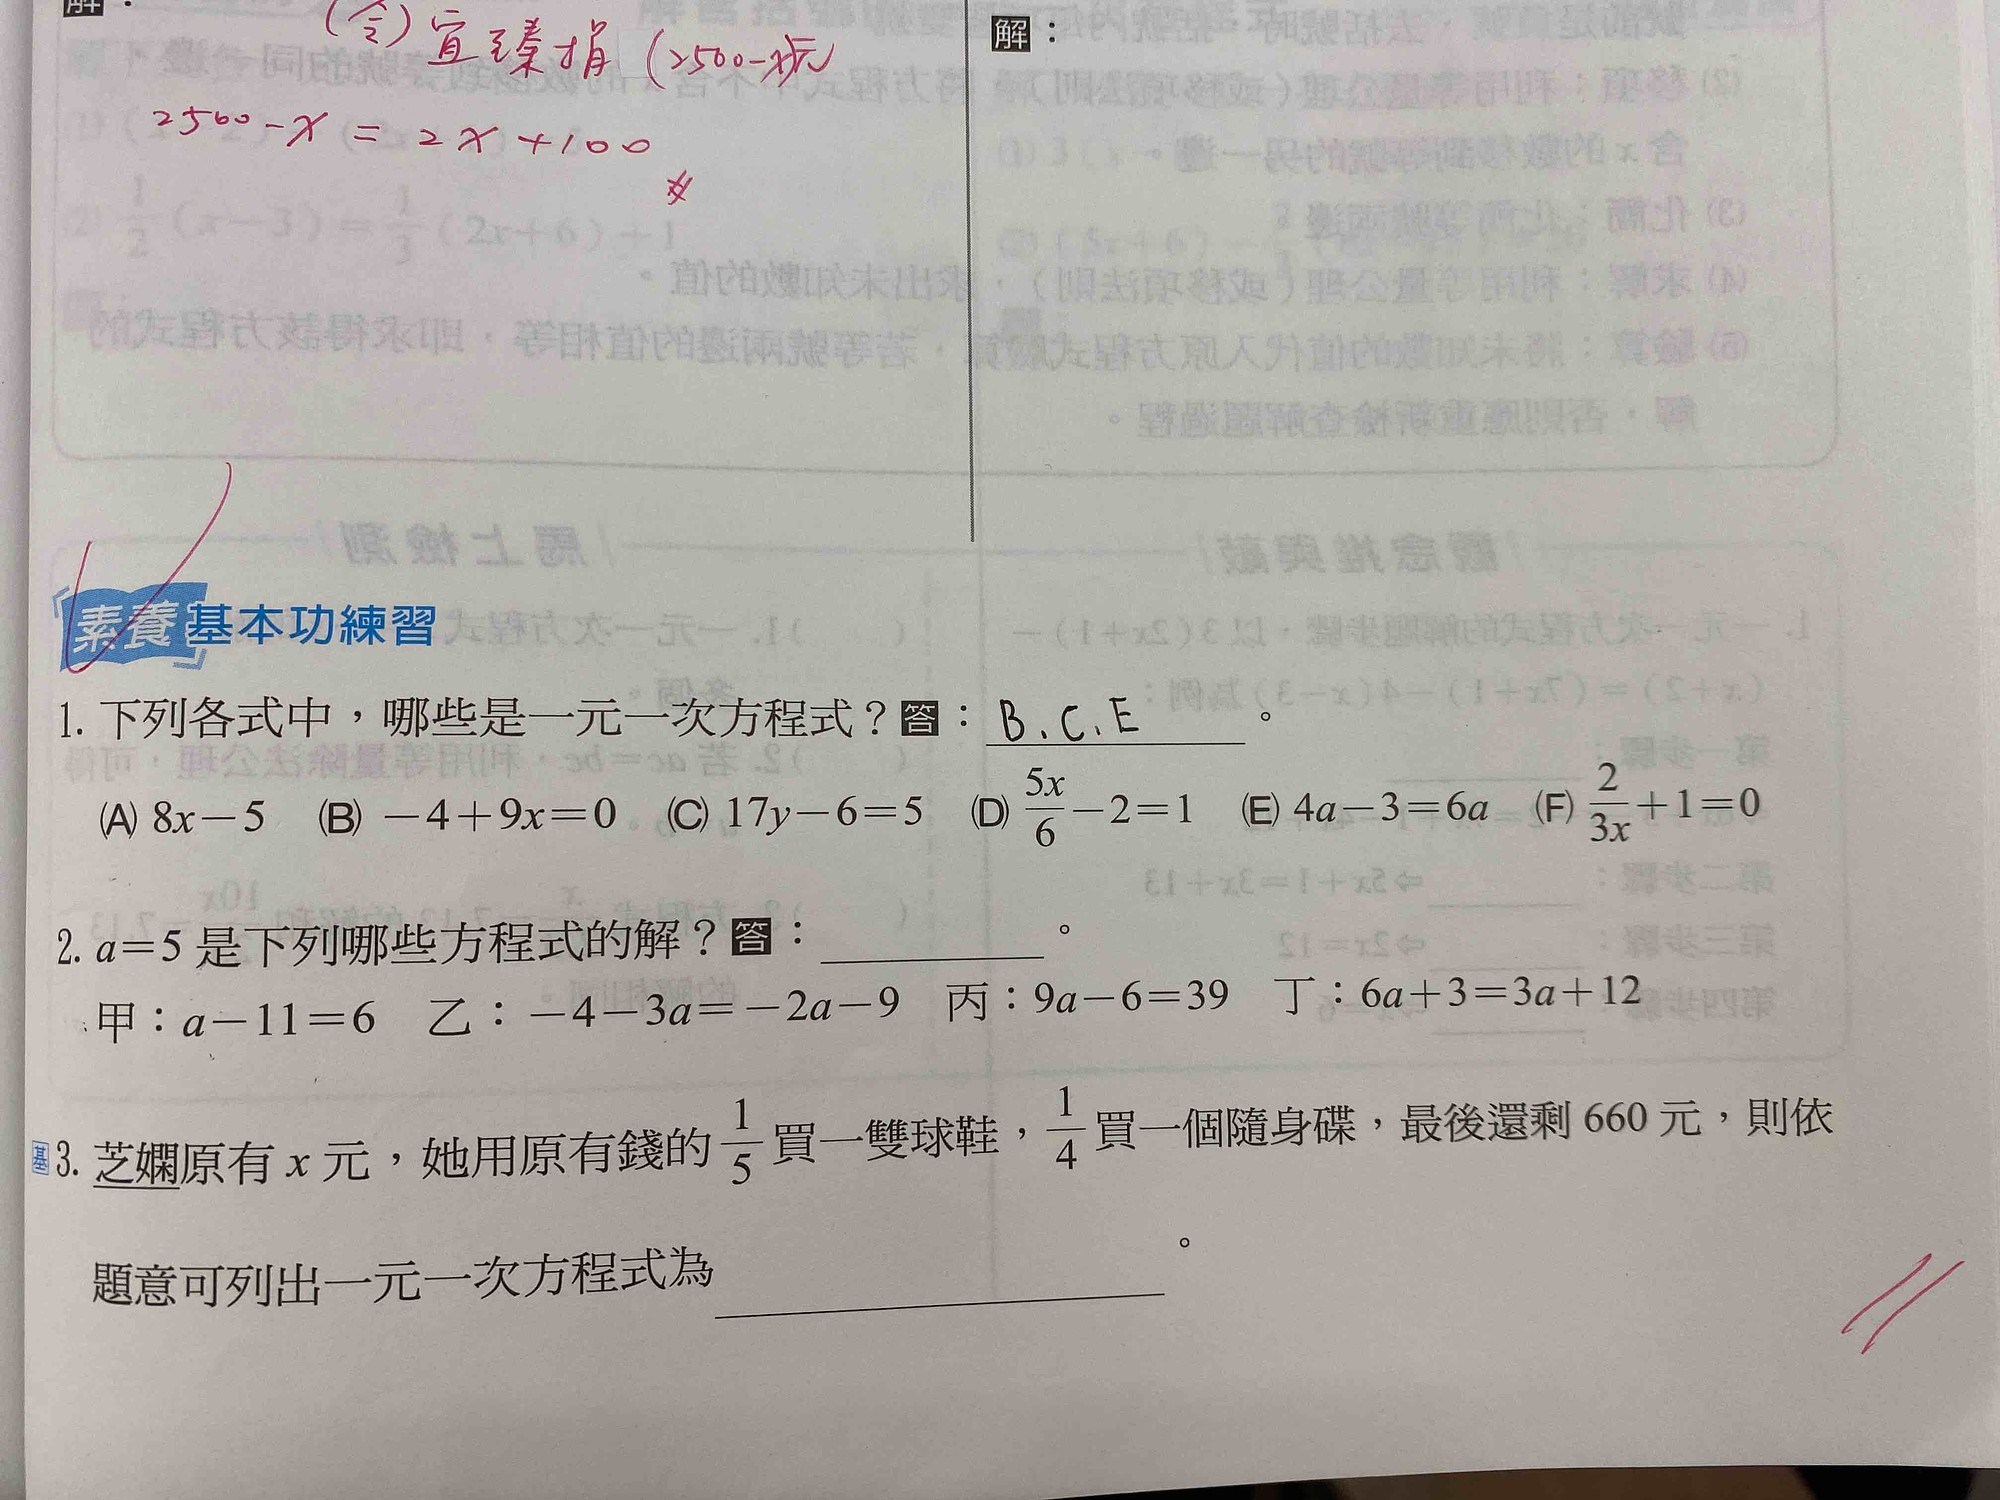 解：
(令)宜臻捐(2500-x)元
2500-x=2x+100
解：
素養 基本功練習
1. 下列各式中，哪些是一元一次方程式？答：B.C.E。
(A) 8x－5 (B) －4＋9x＝0 (C) 17y－6＝5 (D) 5x/6－2＝1 (E) 4a－3＝6a (F) 2/3x＋1＝0
2. a＝5 是下列哪些方程式的解？答：________。
甲：a－11＝6 乙：－4－3a＝－2a－9 丙：9a－6＝39 丁：6a＋3＝3a＋12
基3. 芝嫻原有 x 元，她用原有錢的 1/5 買一雙球鞋，1/4 買一個隨身碟，最後還剩 660 元，則依
題意可列出一元一次方程式為________。